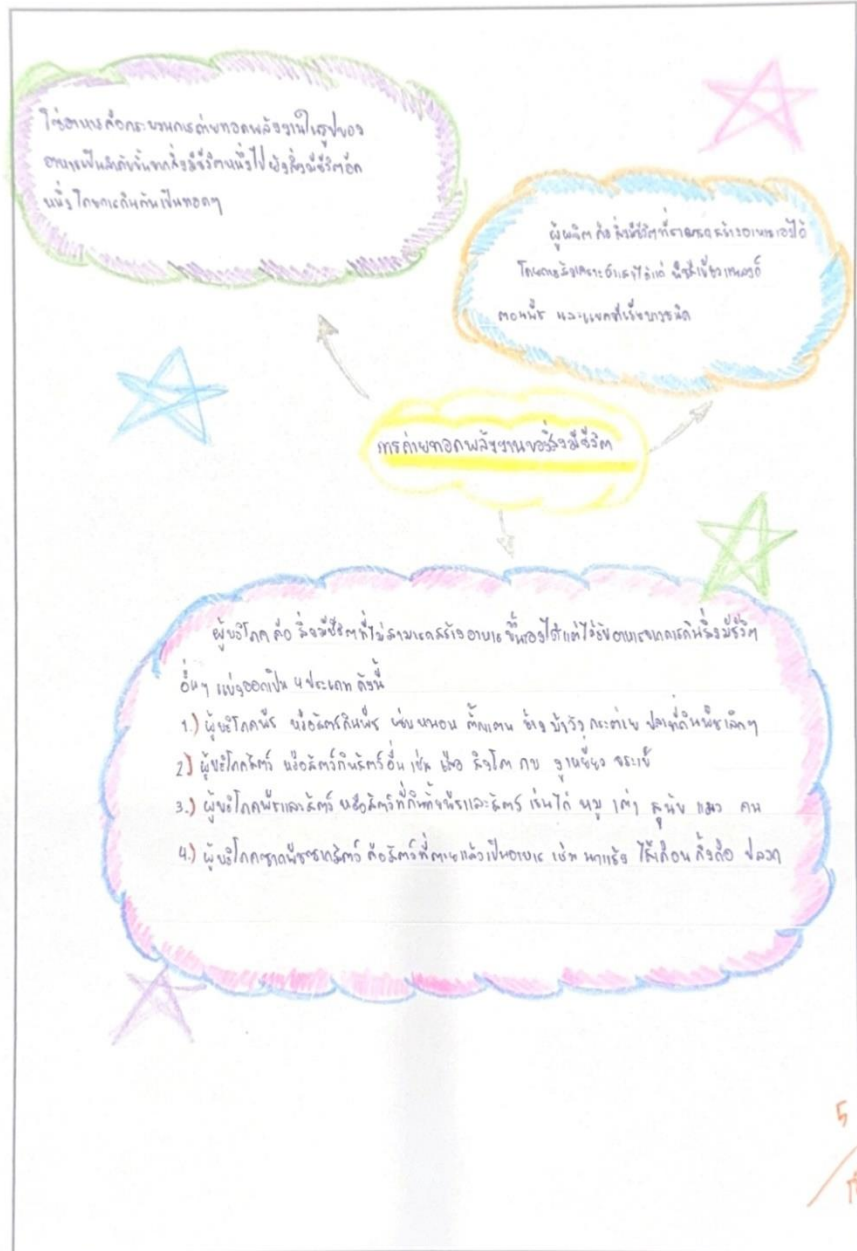 โซ่อาหารคือกระบวนการถ่ายทอดพลังงานในรูปของ
อาหารเป็นลำดับขั้นจากสิ่งมีชีวิตหนึ่งไปยังสิ่งมีชีวิตอีก
หนึ่ง โดยการกินกันเป็นทอดๆ
ผู้ผลิต คือ สิ่งมีชีวิตที่สามารถสร้างอาหารเองได้
โดยการสังเคราะห์แสงได้แก่ พืชสีเขียว แพลงก์
ตอนพืช และแบคทีเรียบางชนิด
การถ่ายทอดพลังงานของสิ่งมีชีวิต
ผู้บริโภค คือ สิ่งมีชีวิตที่ไม่สามารถสร้างอาหารขึ้นเองได้แต่ได้รับอาหารจากการกินสิ่งมีชีวิต
อื่นๆ แบ่งออกเป็น 4 ประเภท ดังนี้
1.) ผู้บริโภคพืช หรือสัตว์กินพืช เช่น หนอน ตั๊กแตน ช้าง ม้า วัว กระต่าย ปลาที่กินพืชเล็กๆ
2) ผู้บริโภคสัตว์ หรือสัตว์กินสัตว์อื่น เช่น เสือ สิงโต กบ งู เหยี่ยว จระเข้
3.) ผู้บริโภคพืชและสัตว์ หรือสัตว์ที่กินทั้งพืชและสัตว์ เช่น ไก่ หมู เต่า สุนัข แมว คน
4.) ผู้บริโภคซากพืชซากสัตว์ คือสัตว์ที่ตายแล้วเป็นอาหาร เช่น นกแร้ง ไส้เดือน กิ้งกือ ปลวก
5